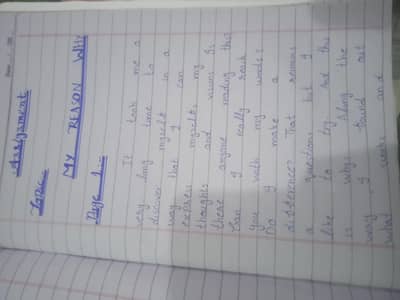 Assignment
Topic:-
MY REASON WHY
Page 1:-
It took me a
very long time to
discover myself in a
way that I can
express myself, my
thoughts and visions. Is
there anyone reading this
Can I really reach
you with my words?
Do I make a
difference? That remains
a question but I
like to try. And this
is why. Along the
way I found out
what works and